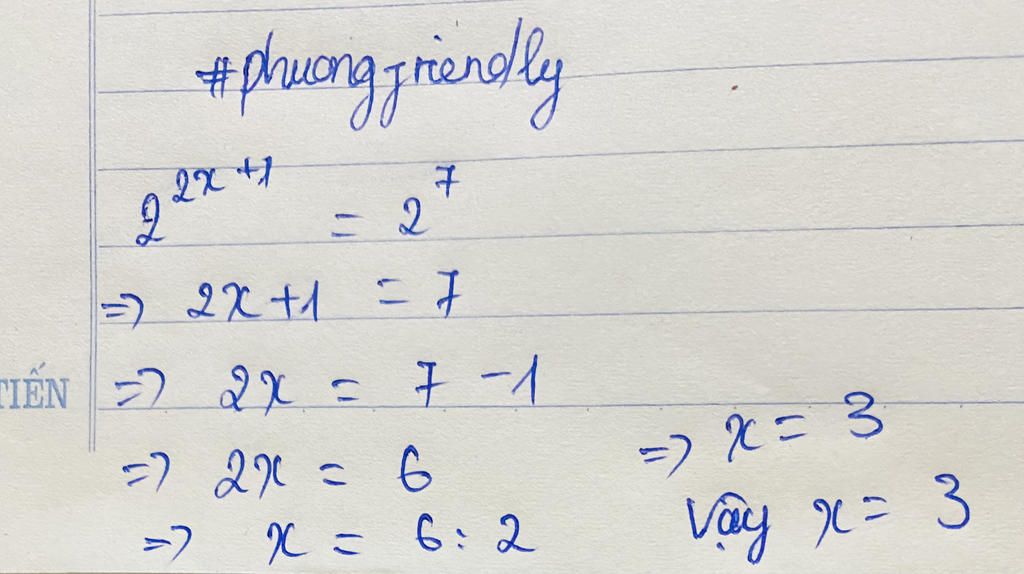 #phuongfriendly
2^{2x+1} = 2^7
=> 2x+1 = 7
TIẾN
=> 2x = 7 -1
=> 2x = 6
=> x = 6:2
=> x = 3
Vậy x = 3